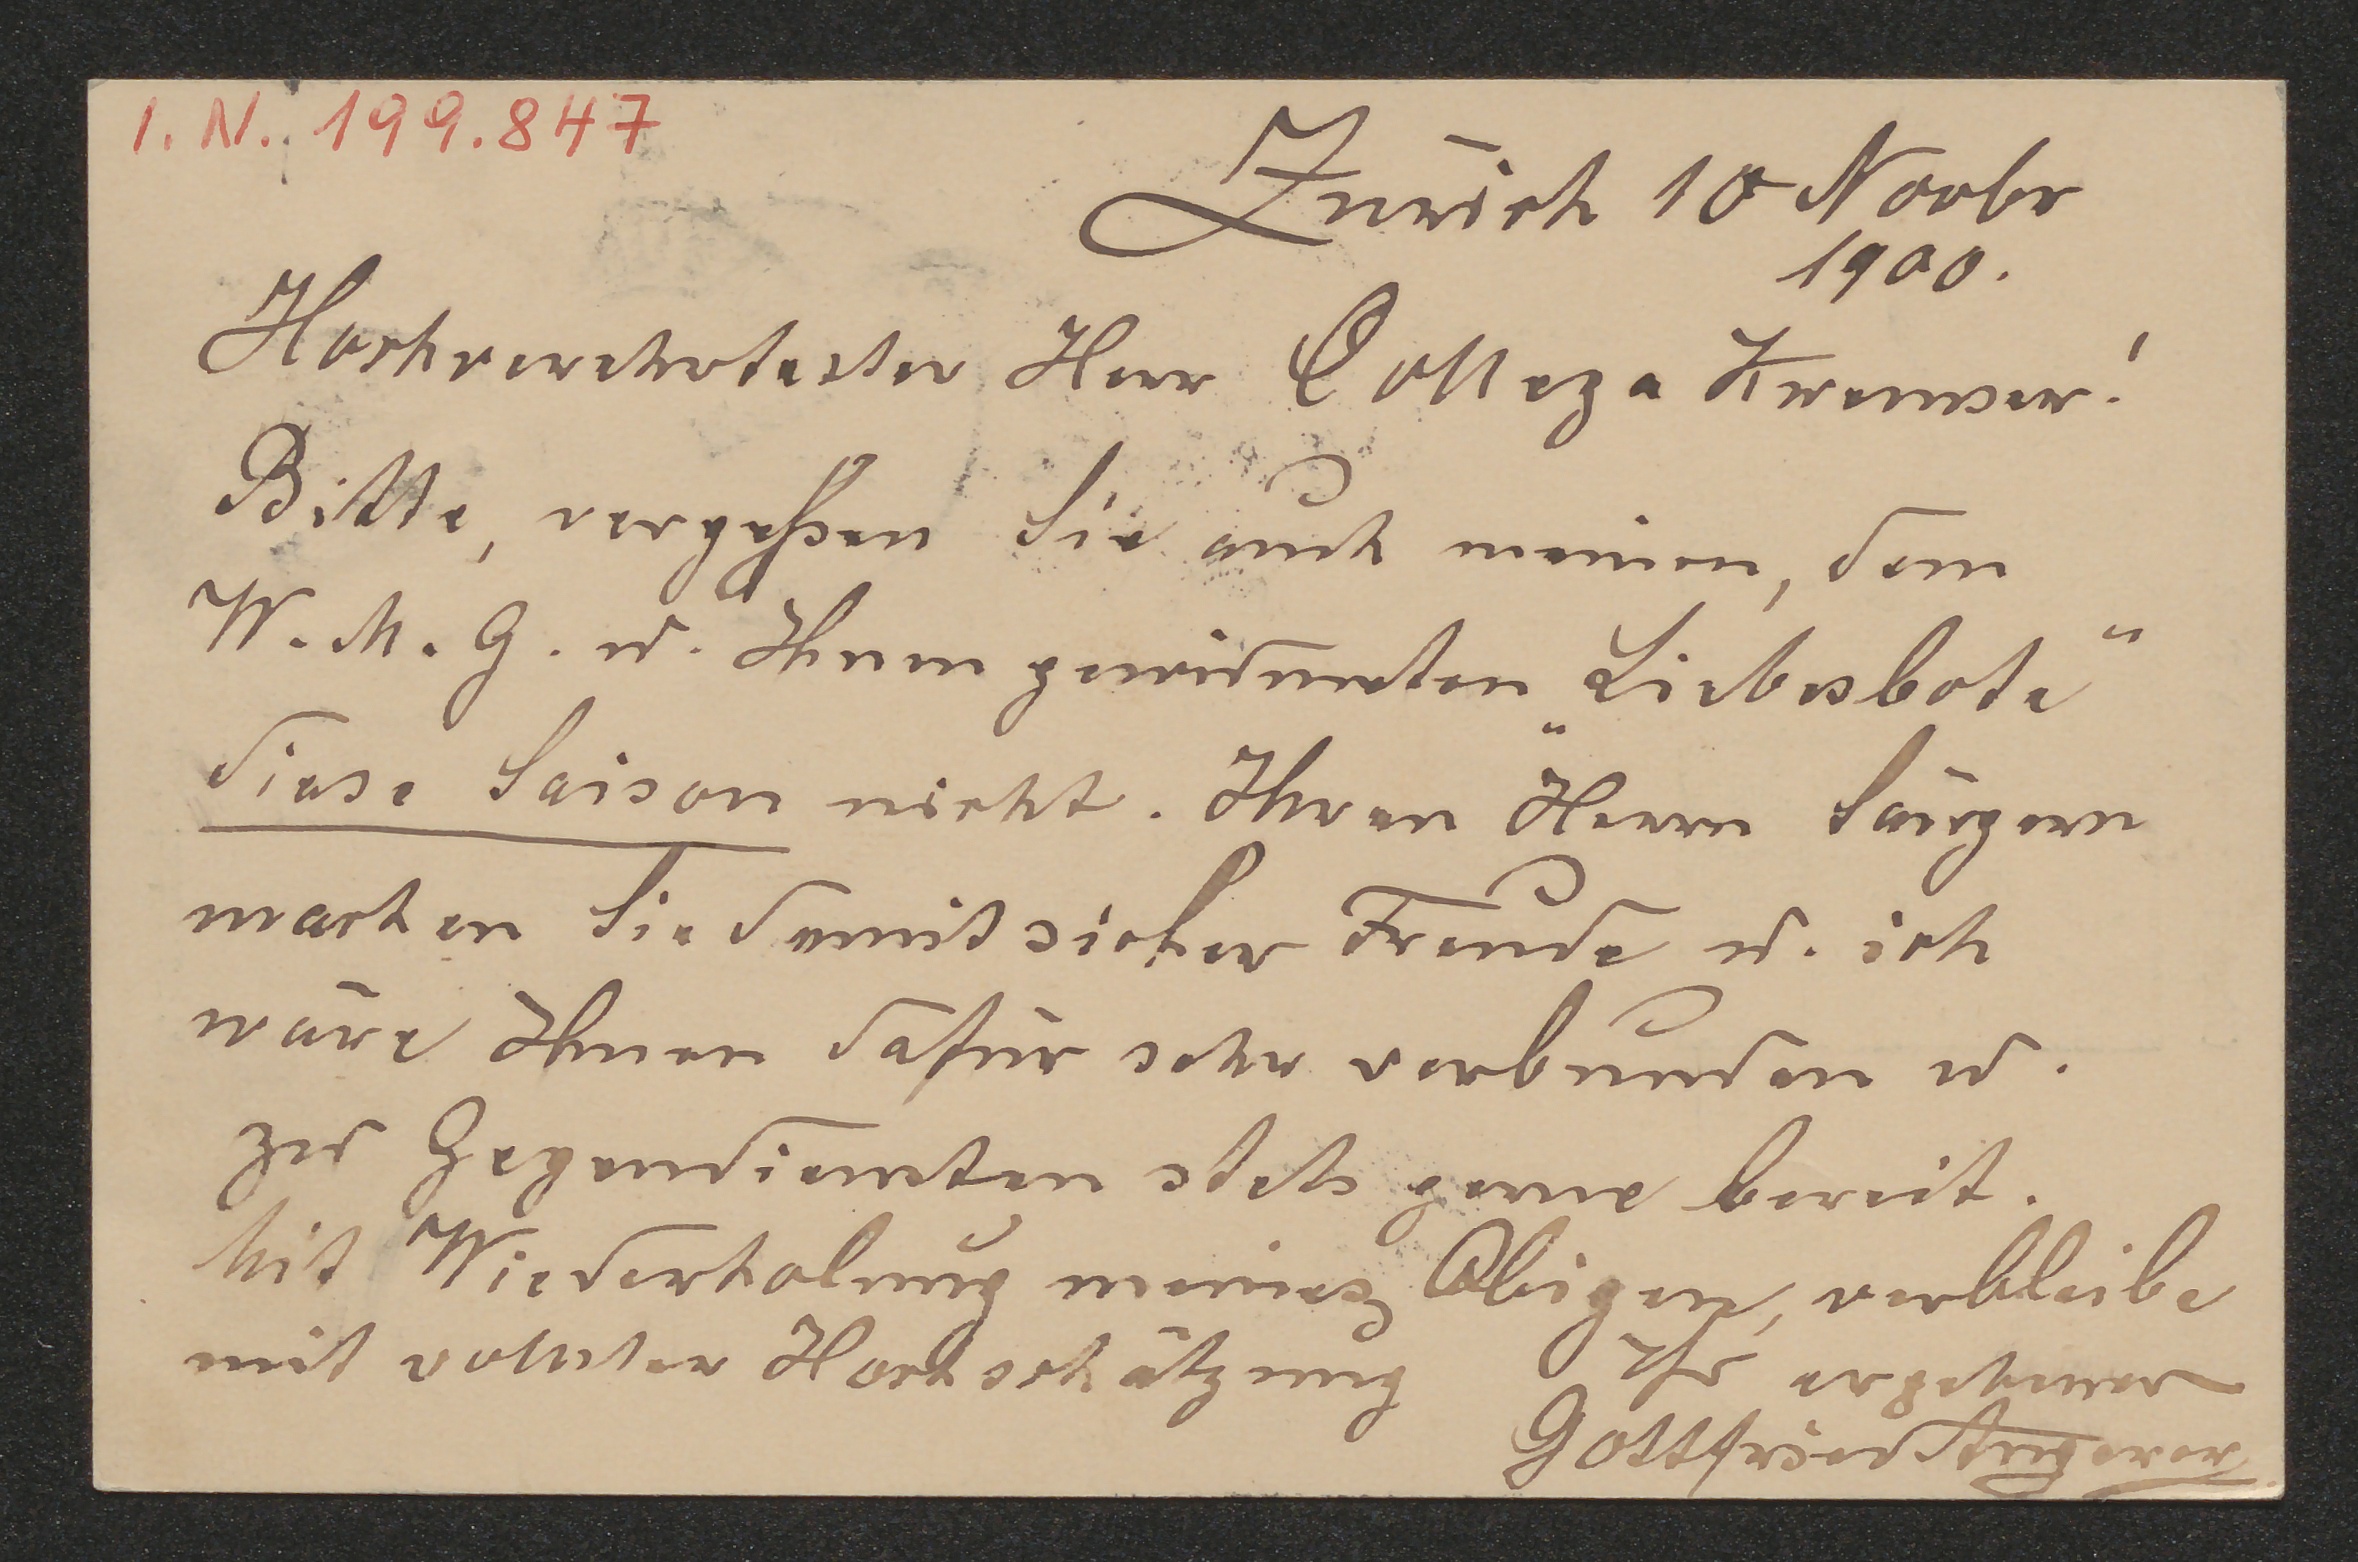 I. N. 199.847
Zürich 10 Novbr
1900.
Hochverehrtester Herr College Kremser!
Bitte, vergessen Sie auch meinen, dem
W. M. G. V. Ihnen gewidmeten „Liebesbote"
diese Saison nicht. Ihren Herrn Sängern
machen Sie damit sicher Freude u. ich
wäre Ihnen dafür sehr verbunden u.
zu Gegendiensten stets gerne bereit.
Mit Wiederholung meines Obigen, verbleibe
mit vollster Hochschätzung Ihr ergebener
Gottfried Angerer